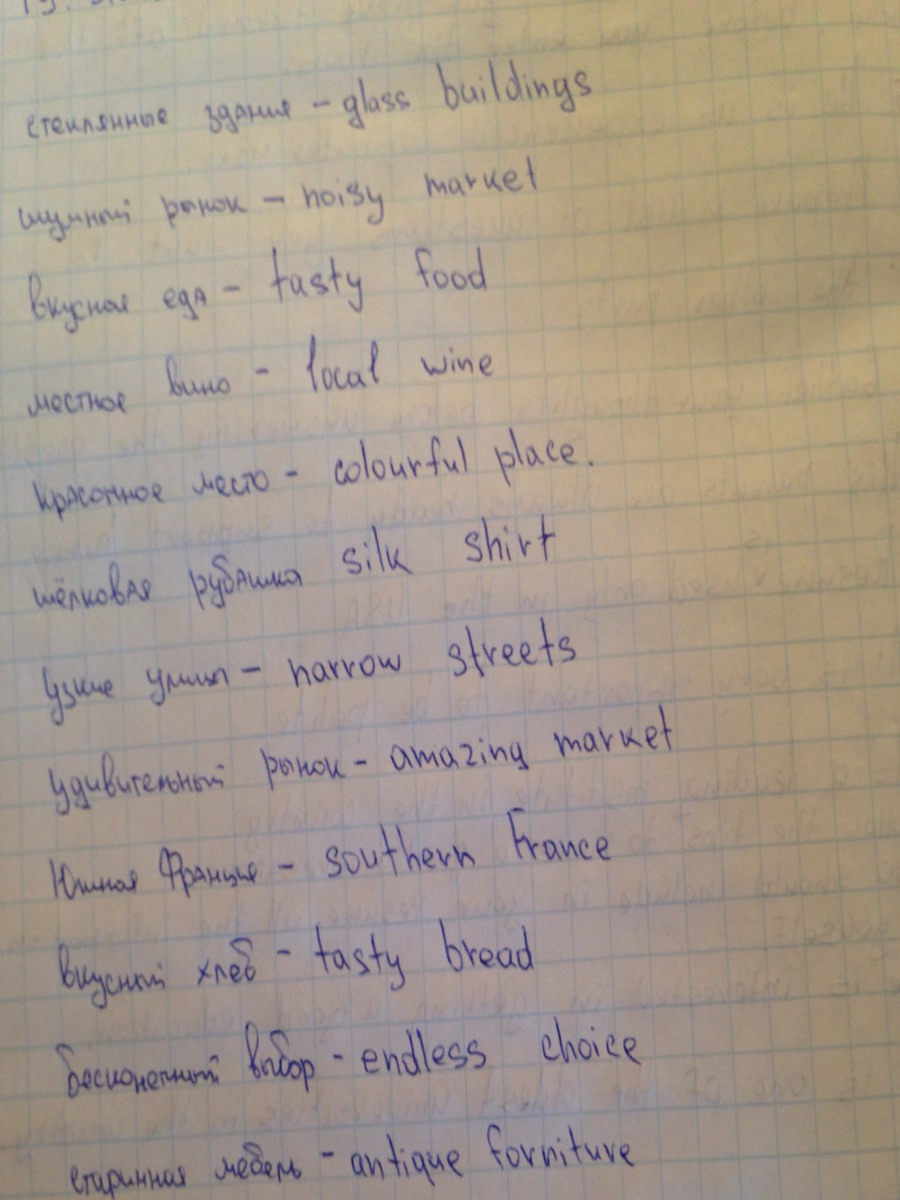 стеклянные здания - glass buildings
шумный рынок - noisy market
вкусная еда - tasty food
местное вино - local wine
красочное место - colourful place.
шёлковая рубашка silk shirt
узкие улицы - narrow streets
удивительный рынок - amazing market
Южная Франция - southern France
вкусный хлеб - tasty bread
бесконечный выбор - endless choice
старинная мебель - antique forniture